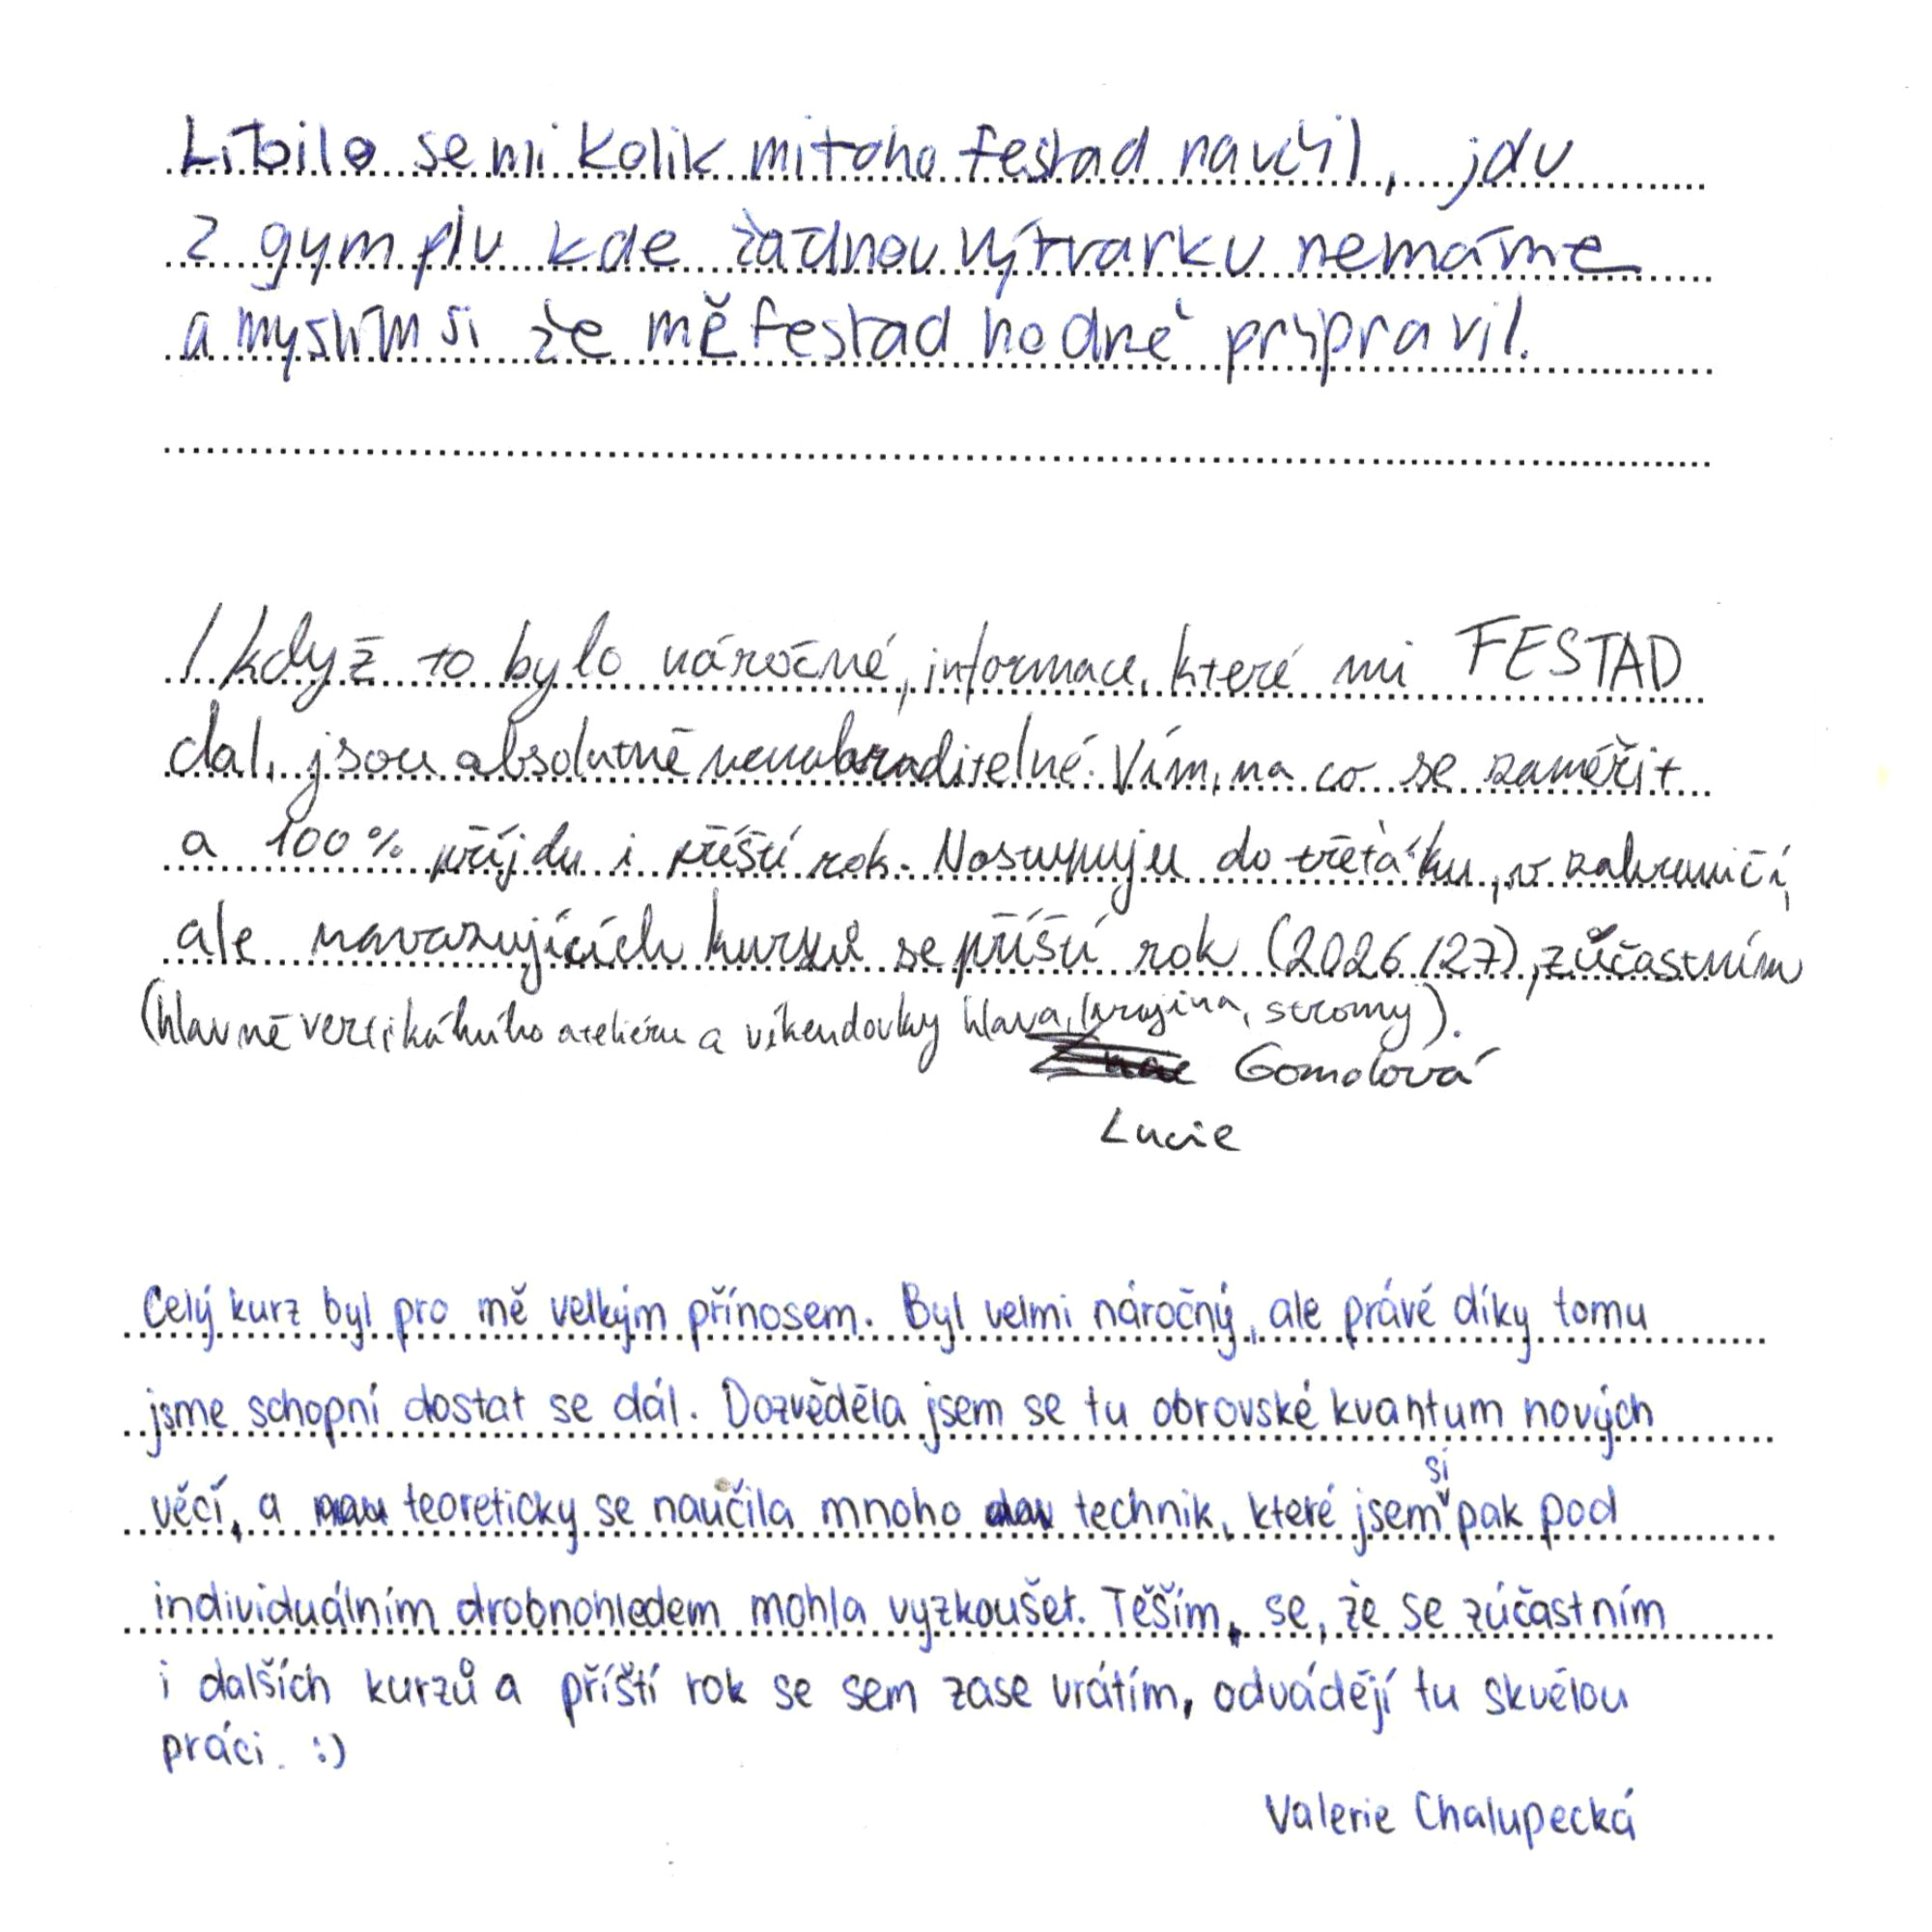 Líbilo se mi kolik mi toho festad naučil, jdu
z gymplu kde žádnou výtvarku nemáme
a myslím si že mě festad hodně připravil.
I když to bylo náročné, informace, které mi FESTAD
dal, jsou absolutně nenahraditelné. Vím, na co se zaměřit
a 100% přijdu i příští rok. Nastupuju do třeťáku, v zahraničí,
ale navazujících kurzů se příští rok (2026/27), zúčastním
(hlavně vertikálního ateliéru a víkendovky hlava, krajina, stromy).
Gomolová
Lucie
Celý kurz byl pro mě velkým přínosem. Byl velmi náročný, ale právě díky tomu
jsme schopní dostat se dál. Dozvěděla jsem se tu obrovské kvantum nových
věcí, a teoreticky se naučila mnoho technik, které jsem si pak pod
individuálním drobnohledem mohla vyzkoušet. Těším, se, že se zúčastním
i dalších kurzů a příští rok se sem zase vrátím, odvádějí tu skvělou
práci. :)
Valerie Chalupecká